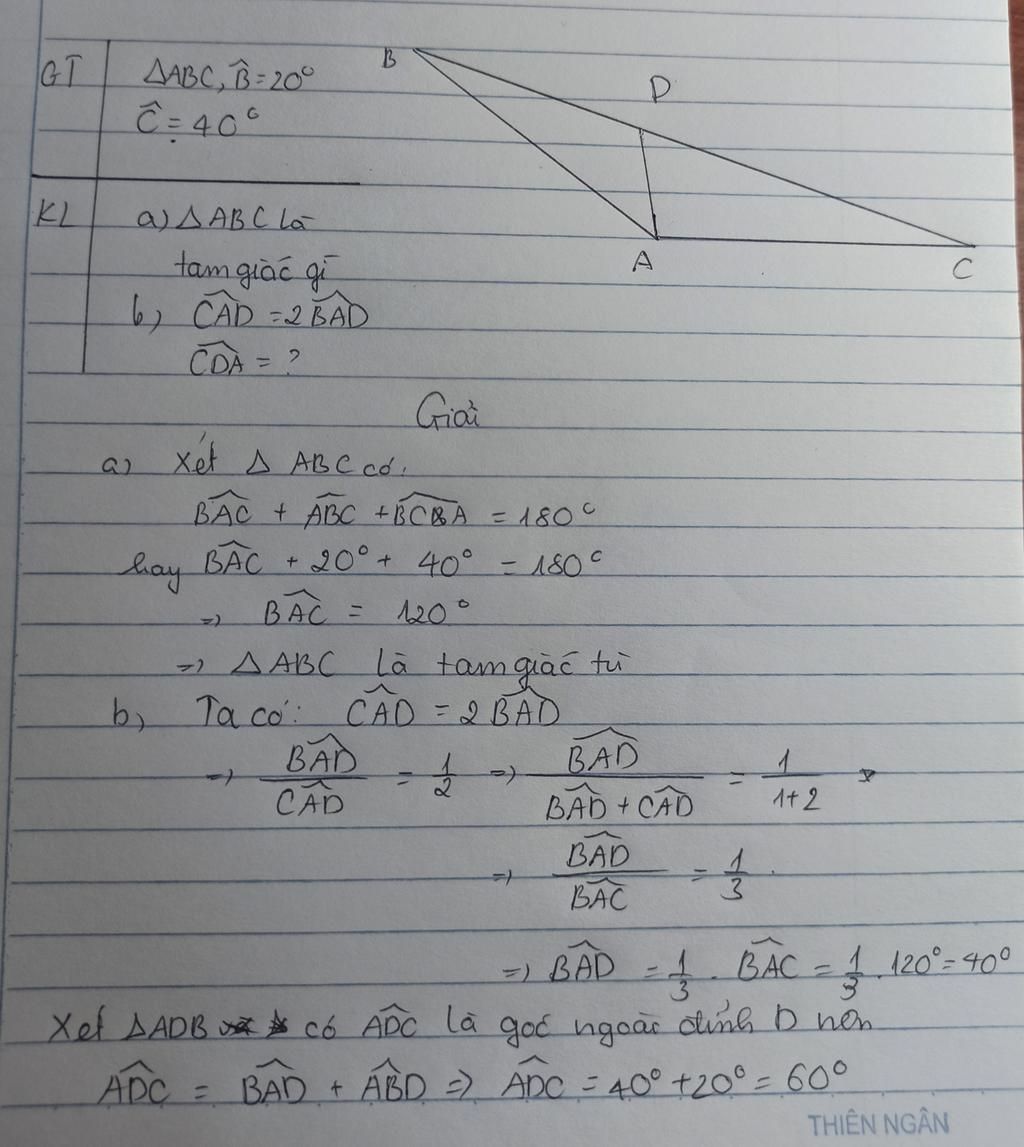 GT ΔABC, B̂ = 20°
Ĉ = 40°
KL a) ΔABC là
tam giác gì
b) CAD̂ = 2BAD̂
CDÂ = ?
B
D
A
C
Giải
a) Xét Δ ABC có:
BAĈ + ABĈ + BCÂ = 180°
hay BAĈ + 20° + 40° = 180°
=> BAĈ = 120°
=> ΔABC là tam giác tù
b) Ta có: CAD̂ = 2BAD̂
=> BAD̂/CAD̂ = 1/2 => BAD̂/(BAD̂ + CAD̂) = 1/(1+2)
=> BAD̂/BAĈ = 1/3
=> BAD̂ = 1/3 . BAĈ = 1/3 . 120° = 40°
Xét ΔADB có ADĈ là góc ngoài đỉnh D nên
ADĈ = BAD̂ + ABD̂ => ADĈ = 40° + 20° = 60°
THIÊN NGÂN